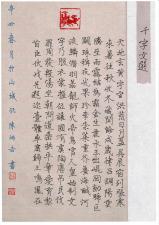 千字文選
天地玄黃宇宙洪荒日月盈昃辰宿列張寒
來暑往秋收冬藏閏餘成歲律呂調陽雲
騰致雨露結為霜金生麗水玉出崑岡劍號巨
闕珠稱夜光果珍李柰菜重芥薑海鹹河
淡鱗潛羽翔龍師火帝鳥官人皇始制文
字乃服衣裳推位讓國有虞陶唐弔民伐
罪周發殷湯坐朝問道垂拱平章愛育黎
首臣伏戎羌遐邇壹體率賓歸王鳴鳳在